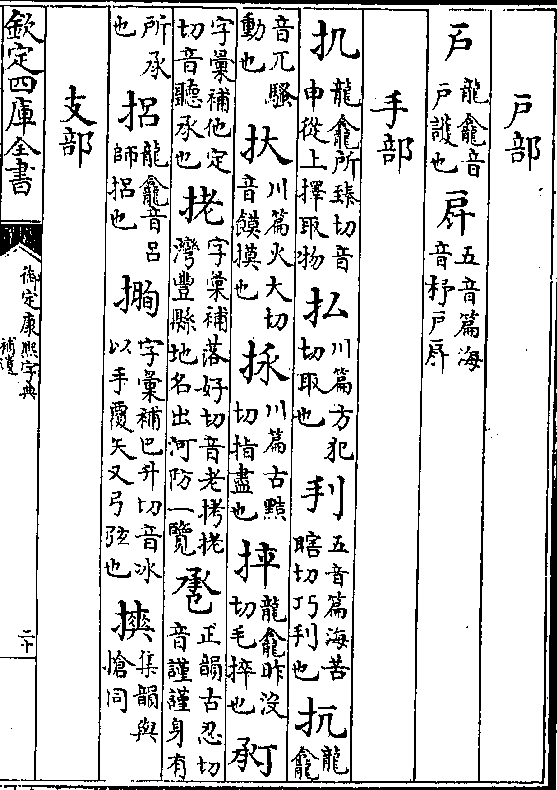 戶部
戶 龍龕音戶護也 㦿 五音篇海音杼戶㦿
手部
扒 龍龕所臻切音申從上擇取物 払 川篇方犯切取也 扌刂 五音篇海苦瞎切巧利也 扤 龍龕
音兀騷動也 扶 川篇火大切音饃摸也 拯 川篇古黠切指盡也 捽 龍龕昨沒切毛捽也
字彙補他定切音聽承也 㧯 字彙補落好切音老栲㧯灣豐縣地名出河防一覽 㔛 正韻古忍切音謹謹身有
所承也 捛 龍龕音呂師捛也 掤 字彙補巴升切音冰以手覆矢又弓弦也 㨒 集韻與愴同
支部
欽定四庫全書
御定康熙字典
補遺
二十